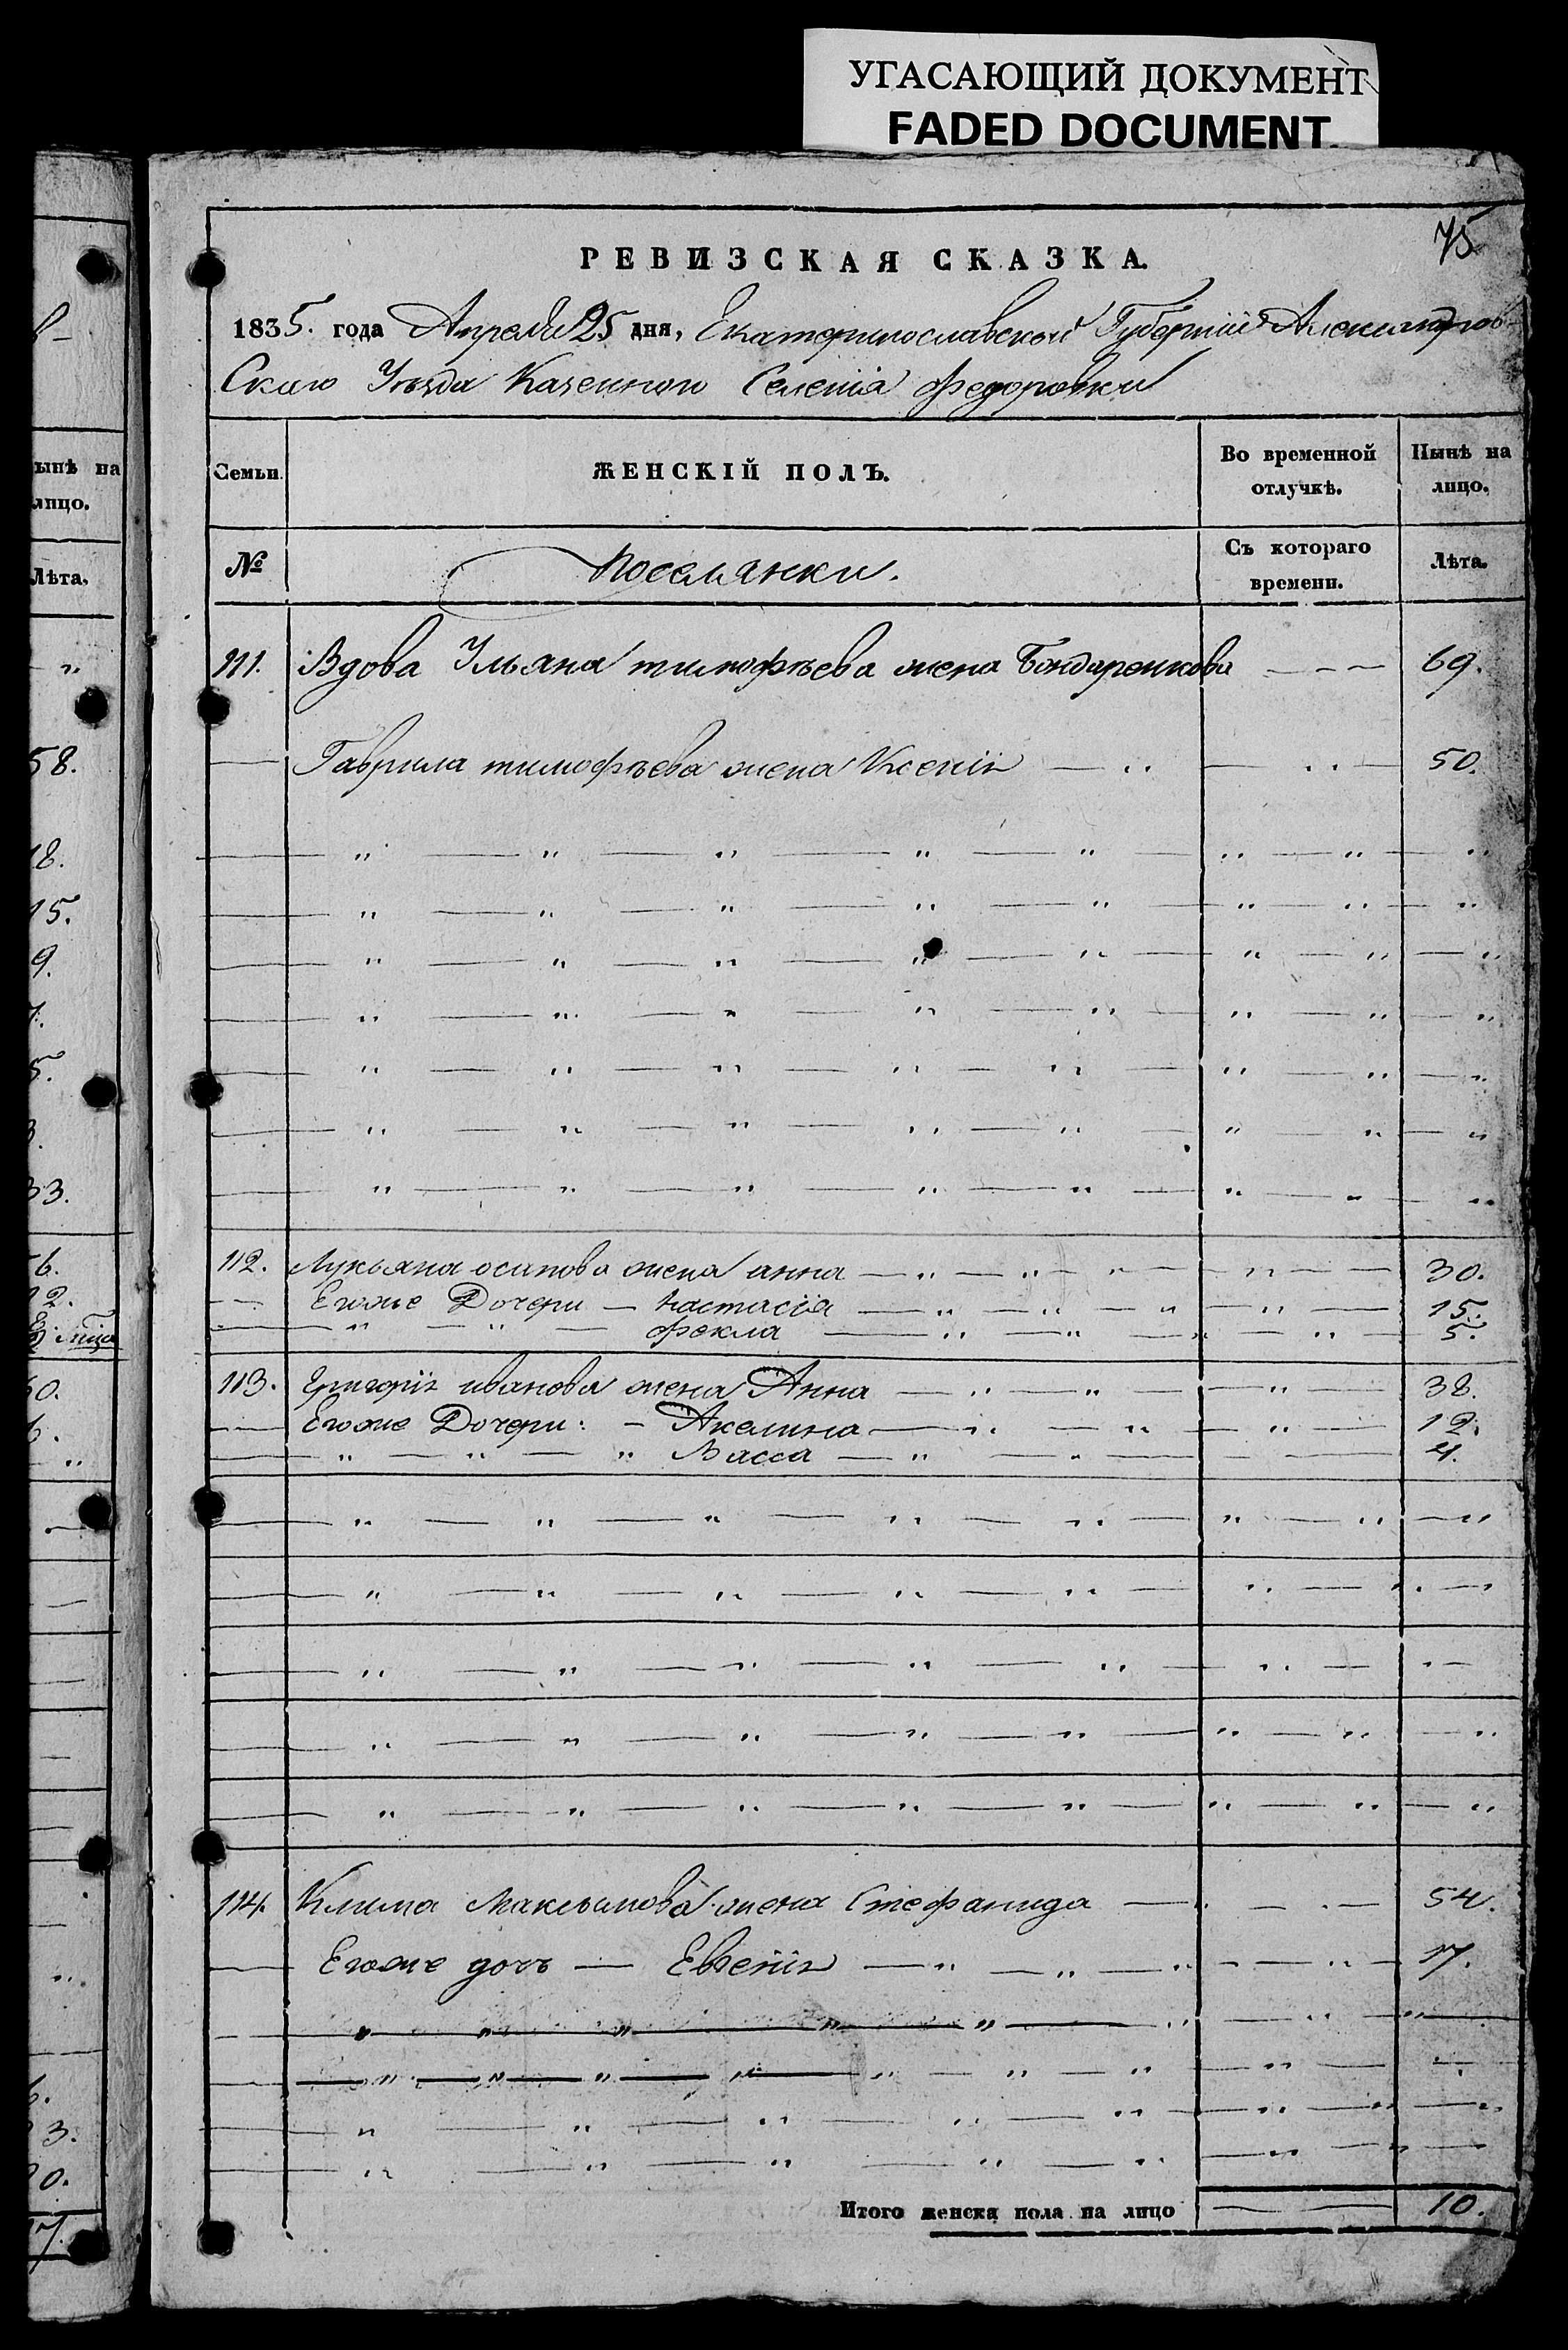 УГАСАЮЩИЙ ДОКУМЕНТ
FADED DOCUMENT
75
РЕВИЗСКАЯ СКАЗКА.
1835. года Апреля 25 дня, Екатеринославской Губернии Александров-
Скаго Уѣзда Казенного Селенія Федоровки
Семьи. ЖЕНСКІЙ ПОЛЪ. Во временной отлучкѣ. Нынѣ на лицо.
№ Поселянки. Съ котораго времени. Лѣта.
111. Вдова Ульяна тимофѣева жена Бондаренкова 69.
Гаврила тимофѣева жена Ксенія 50.
112. Лукьяна осипова жена анна 30.
Егоже Дочери настасія 15.
фекла 5.
113. Григорія иванова жена Анна 38.
Егоже Дочери: Акелина 12.
Васса 4.
114. Клима Максимова жена Стефанида 54.
Егоже дочь Евгенія 17.
Итого женска пола на лицо 10.
ынѣ на
лицо.
Лѣта.
58.
18.
15.
9.
5.
33.